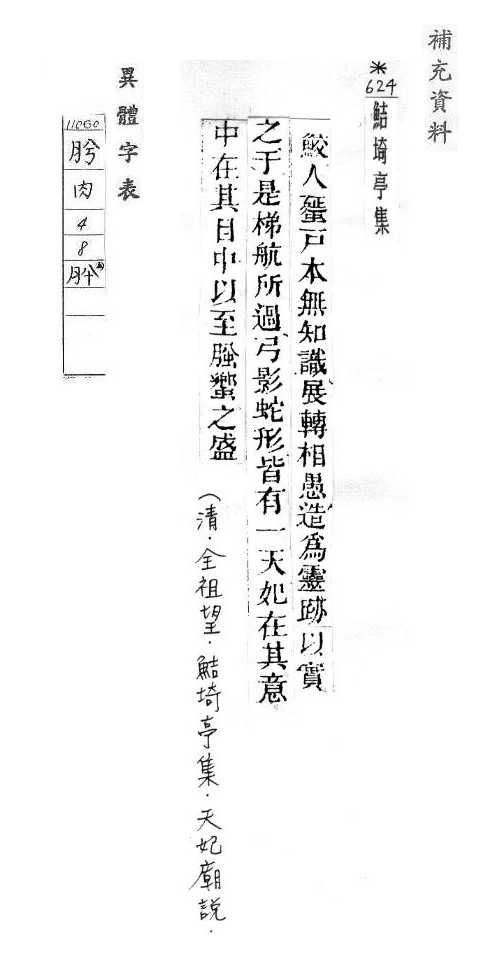 補充資料
*
624
鮚埼亭集
鮫人蜑戸本無知識展轉相愚造爲靈跡以實
之于是梯航所過弓影蛇形皆有一天妃在其意
中在其目中以至蠁之盛
(清．全祖望．鮚埼亭集．天妃廟說．
異體字表
11060
肹
肉
4
8
肸